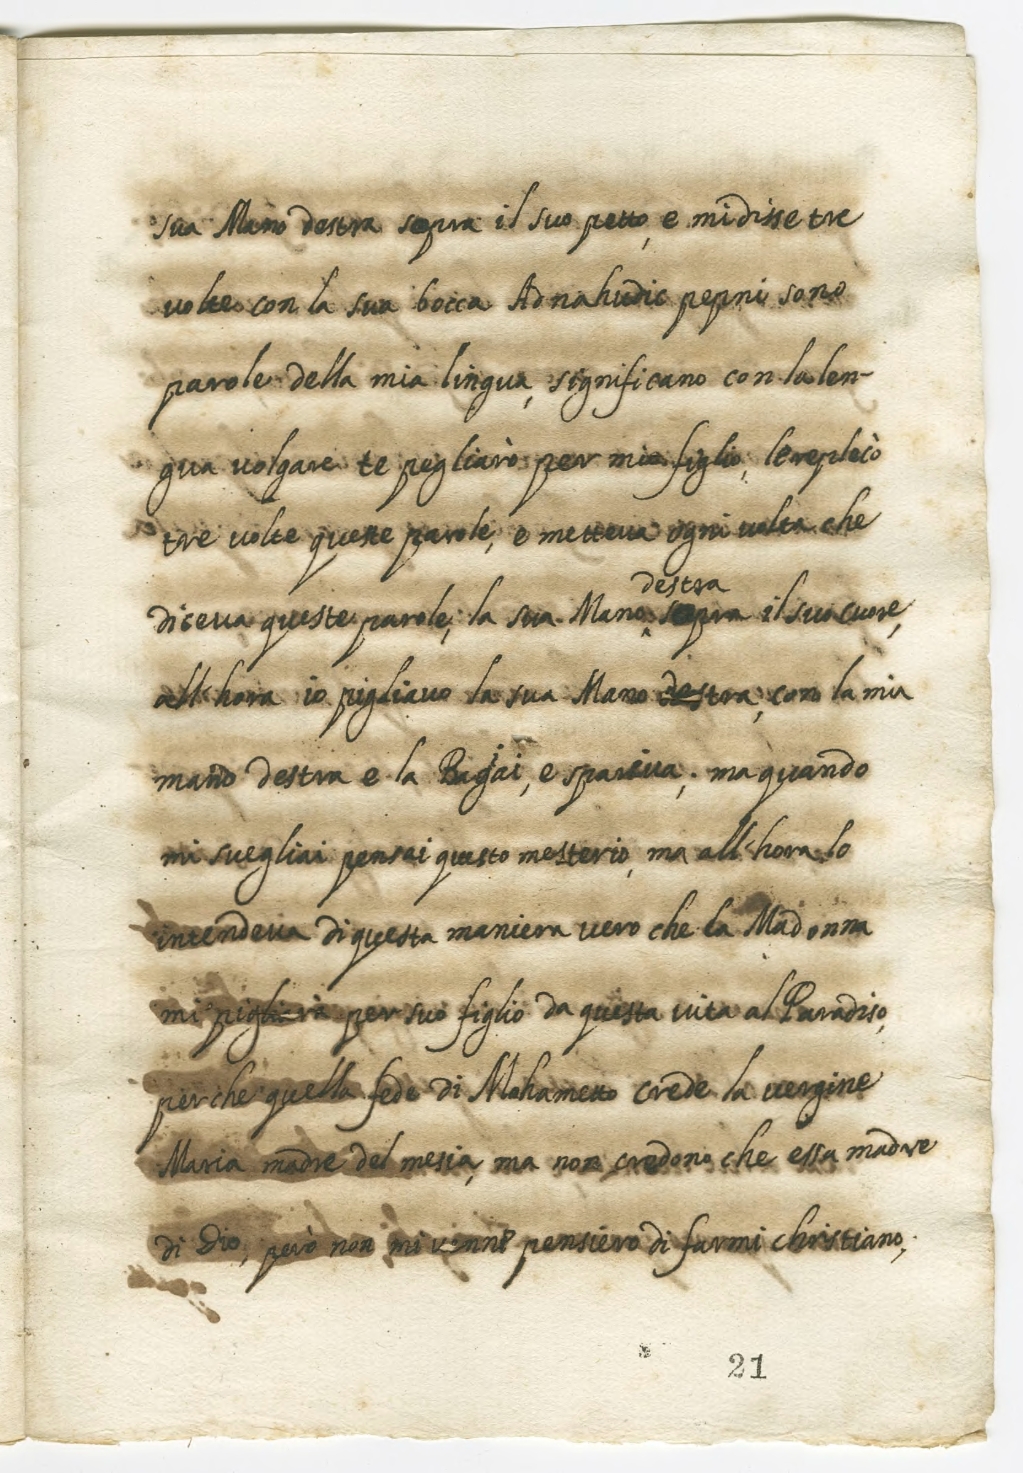 sua Mano destra sopra il suo petto, e mi disse tre
volte con la sua bocca Adnahudic pepni sono
parole della mia lingua, significano con la len-
gua volgare te pegliarò per mio figlio, le replicò
tre volte queste parole, e metteva ogni volta che
destra
diceva queste parole, la sua Mano sopra il suo cuore,
all'hora io pigliavo la sua Mano destra, con la mia
mano destra e la Bagiai, e spariva, ma quando
mi svegliai pensai questo mesterio, ma all'hora lo
intendeva di questa maniera vero che la Madonna
mi pigliarà per suo figlio da questa vita al Paradiso,
perche quella fede di Mohametto crede la vergine
Maria madre del mesia, ma non credono che essa madre
di Dio, però non mi venne pensiero di farmi christiano,
21